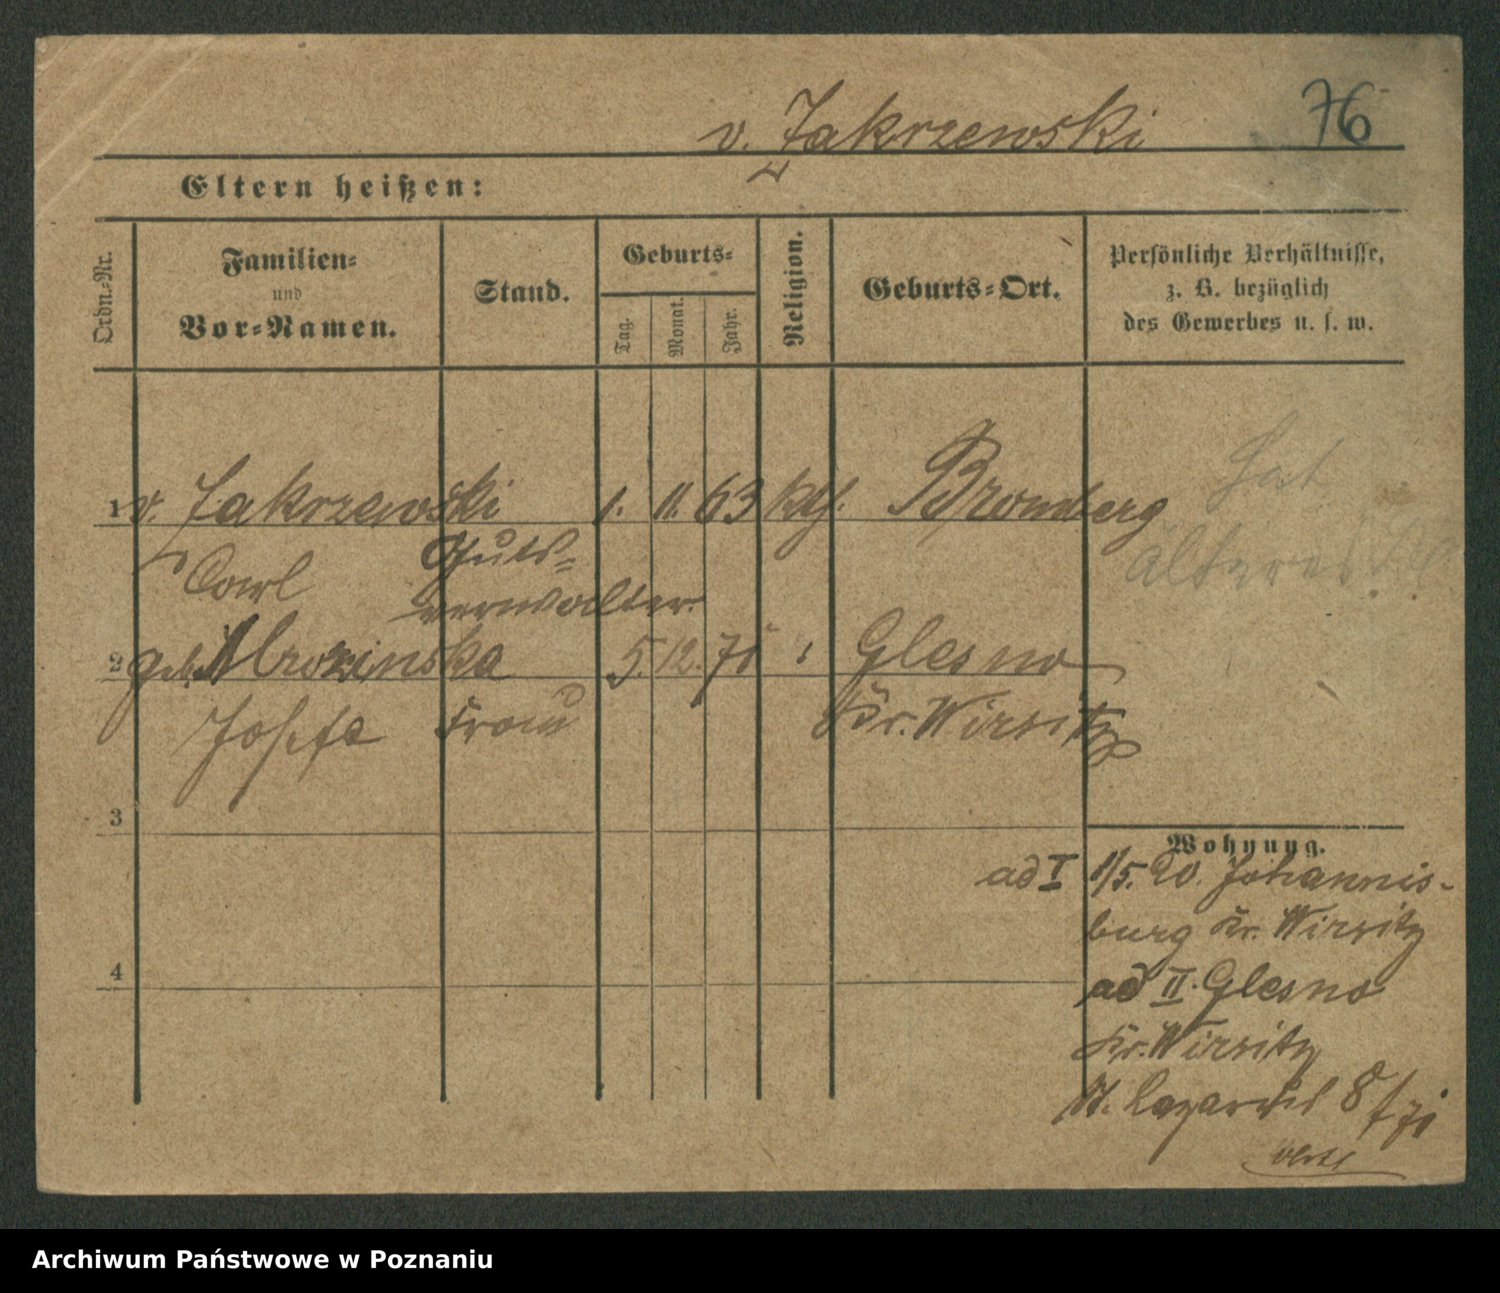 v. Zakrzewski 76
Eltern heißen:
Ordn.-Nr. Familien- und Vor-Namen. Stand. Geburts- Tag. Monat. Jahr. Religion. Geburts-Ort. Persönliche Verhältnisse, z. B. bezüglich des Gewerbes u. s. w.
1 v. Zakrzewski 1. 11. 63 kth. Bromberg
Hat
Carl Guts-
älteres
verwalter.
2 geb. Mrozinska 5. 12. 71 Glesno
Josefa Frau Kr. Wirsitz
3
Wohnung.
ad I 1/5. 20. Johannis-
burg Kr. Wirsitz
4
ad II. Glesno
Kr. Wirsitz
St. 8